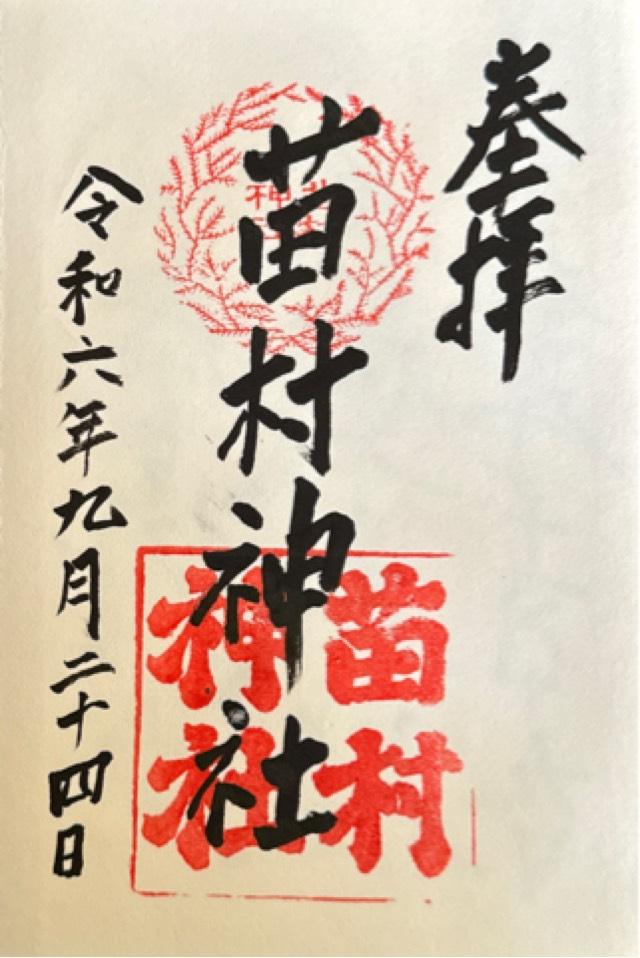 奉拝
苗村神社
苗村
神社
令和六年九月二十四日